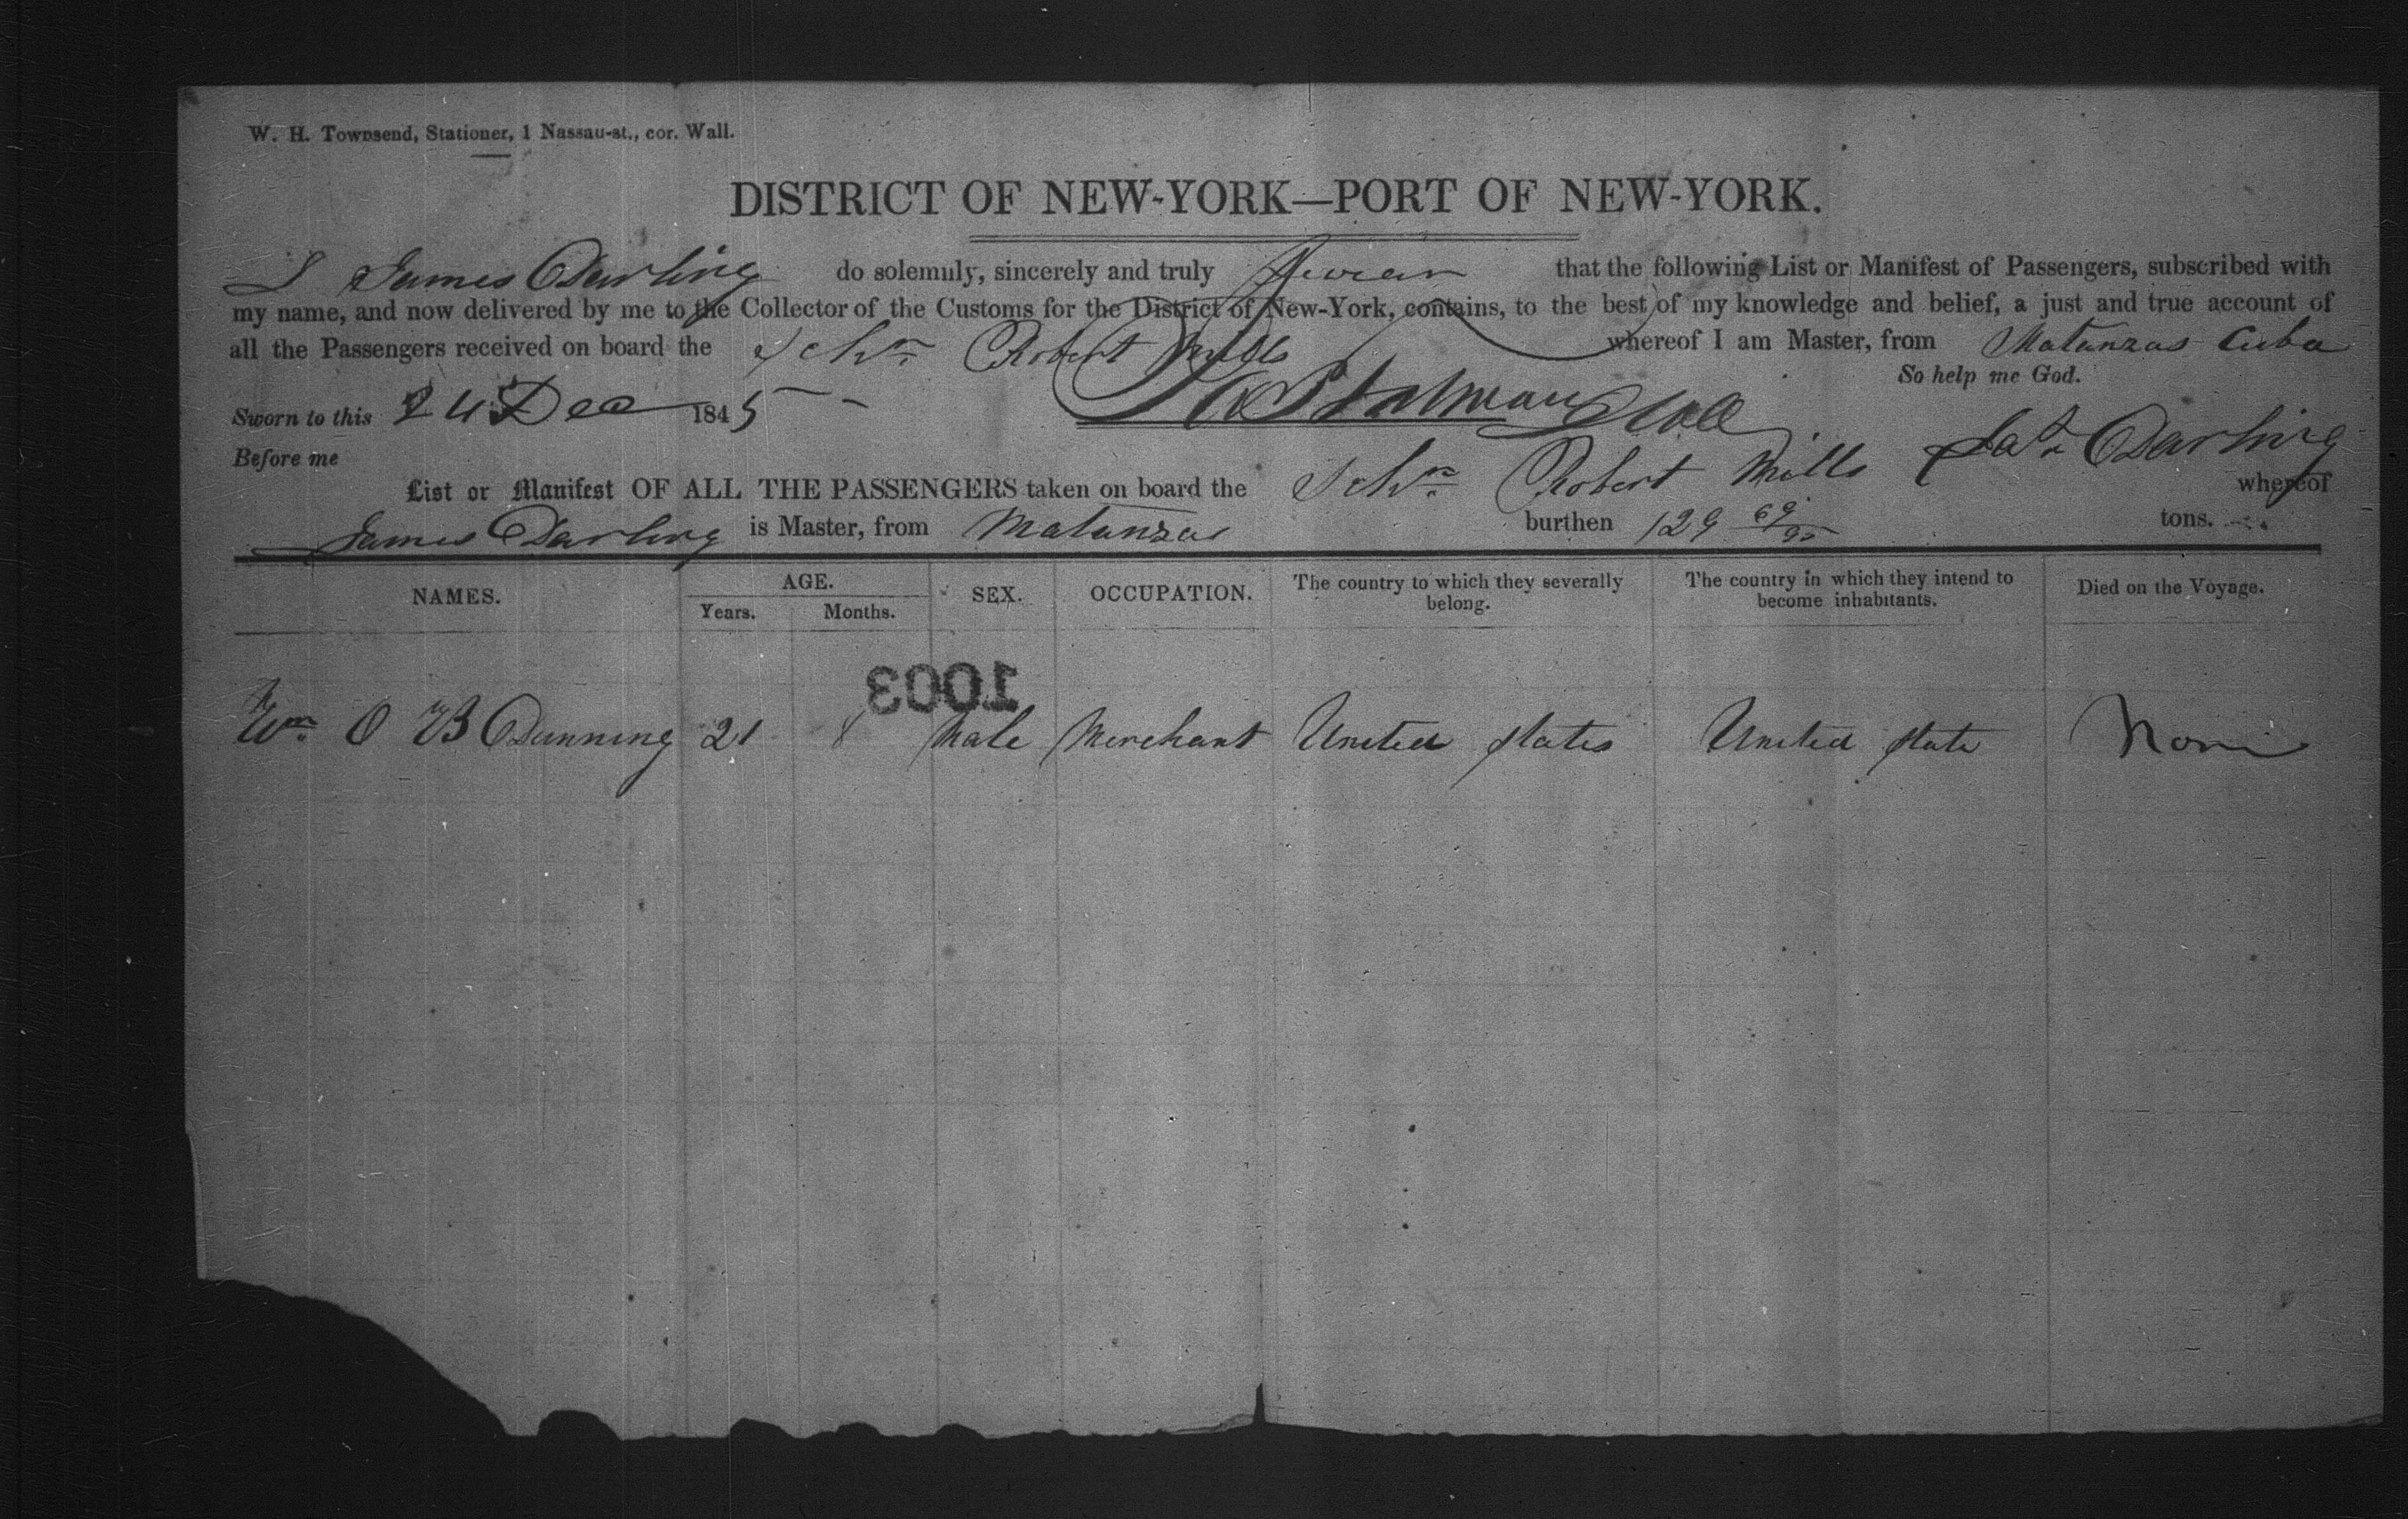 W. H. Townsend, Stationer, 1 Nassau-st., cor. Wall.
DISTRICT OF NEW-YORK—PORT OF NEW-YORK.
I James Darling do solemnly, sincerely and truly swear that the following List or Manifest of Passengers, subscribed with
my name, and now delivered by me to the Collector of the Customs for the District of New-York, contains, to the best of my knowledge and belief, a just and true account of
all the Passengers received on board the Schr Robert Mills whereof I am Master, from Matanzas Cuba
So help me God.
Sworn to this 24 Dec 1845
Before me
Jas Darling
List or Manifest OF ALL THE PASSENGERS taken on board the Schr Robert Mills whereof
James Darling is Master, from Matanzas burthen 129 69/95 tons.
NAMES. AGE. SEX. OCCUPATION. The country to which they severally belong. The country in which they intend to become inhabitants. Died on the Voyage.
Years. Months.
1003
Wm O B Dunning 21 8 Male Merchant United states United state None